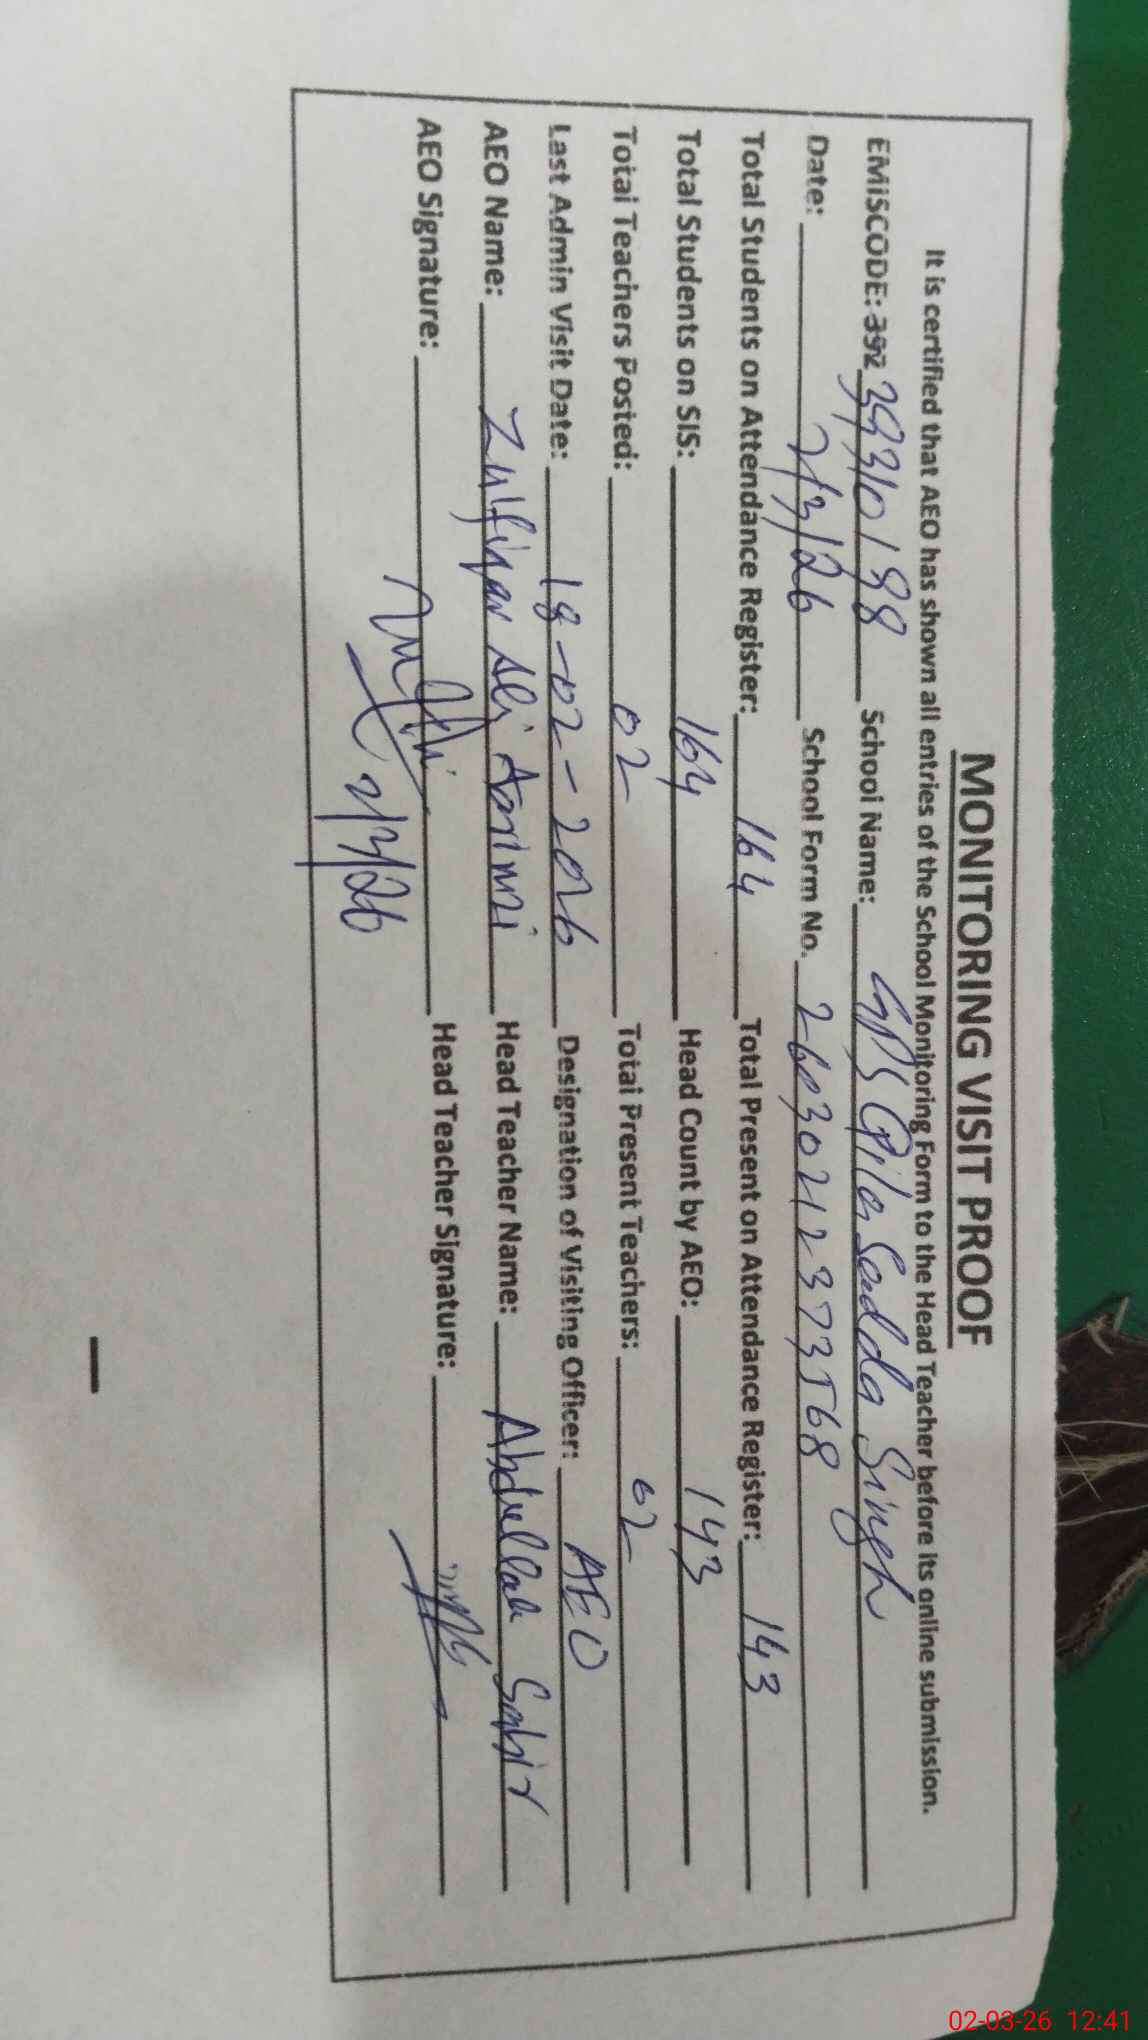 MONITORING VISIT PROOF
It is certified that AEO has shown all entries of the School Monitoring Form to the Head Teacher before its online submission.
EMISCODE: 392 39310198 School Name: GPS Qila Sadda Singh
Date: 2/3/26 School Form No. 26030212373568
Total Students on Attendance Register: 164 Total Present on Attendance Register: 143
Total Students on SIS: 164 Head Count by AEO: 143
Total Teachers Posted: 02 Total Present Teachers: 02
Last Admin Visit Date: 18-02-2026 Designation of Visiting Officer: AEO
AEO Name: Zulfiqar Ali Head Teacher Name: Abdullah Sabir
AEO Signature: Head Teacher Signature:
2/3/26
02-03-26 12:41